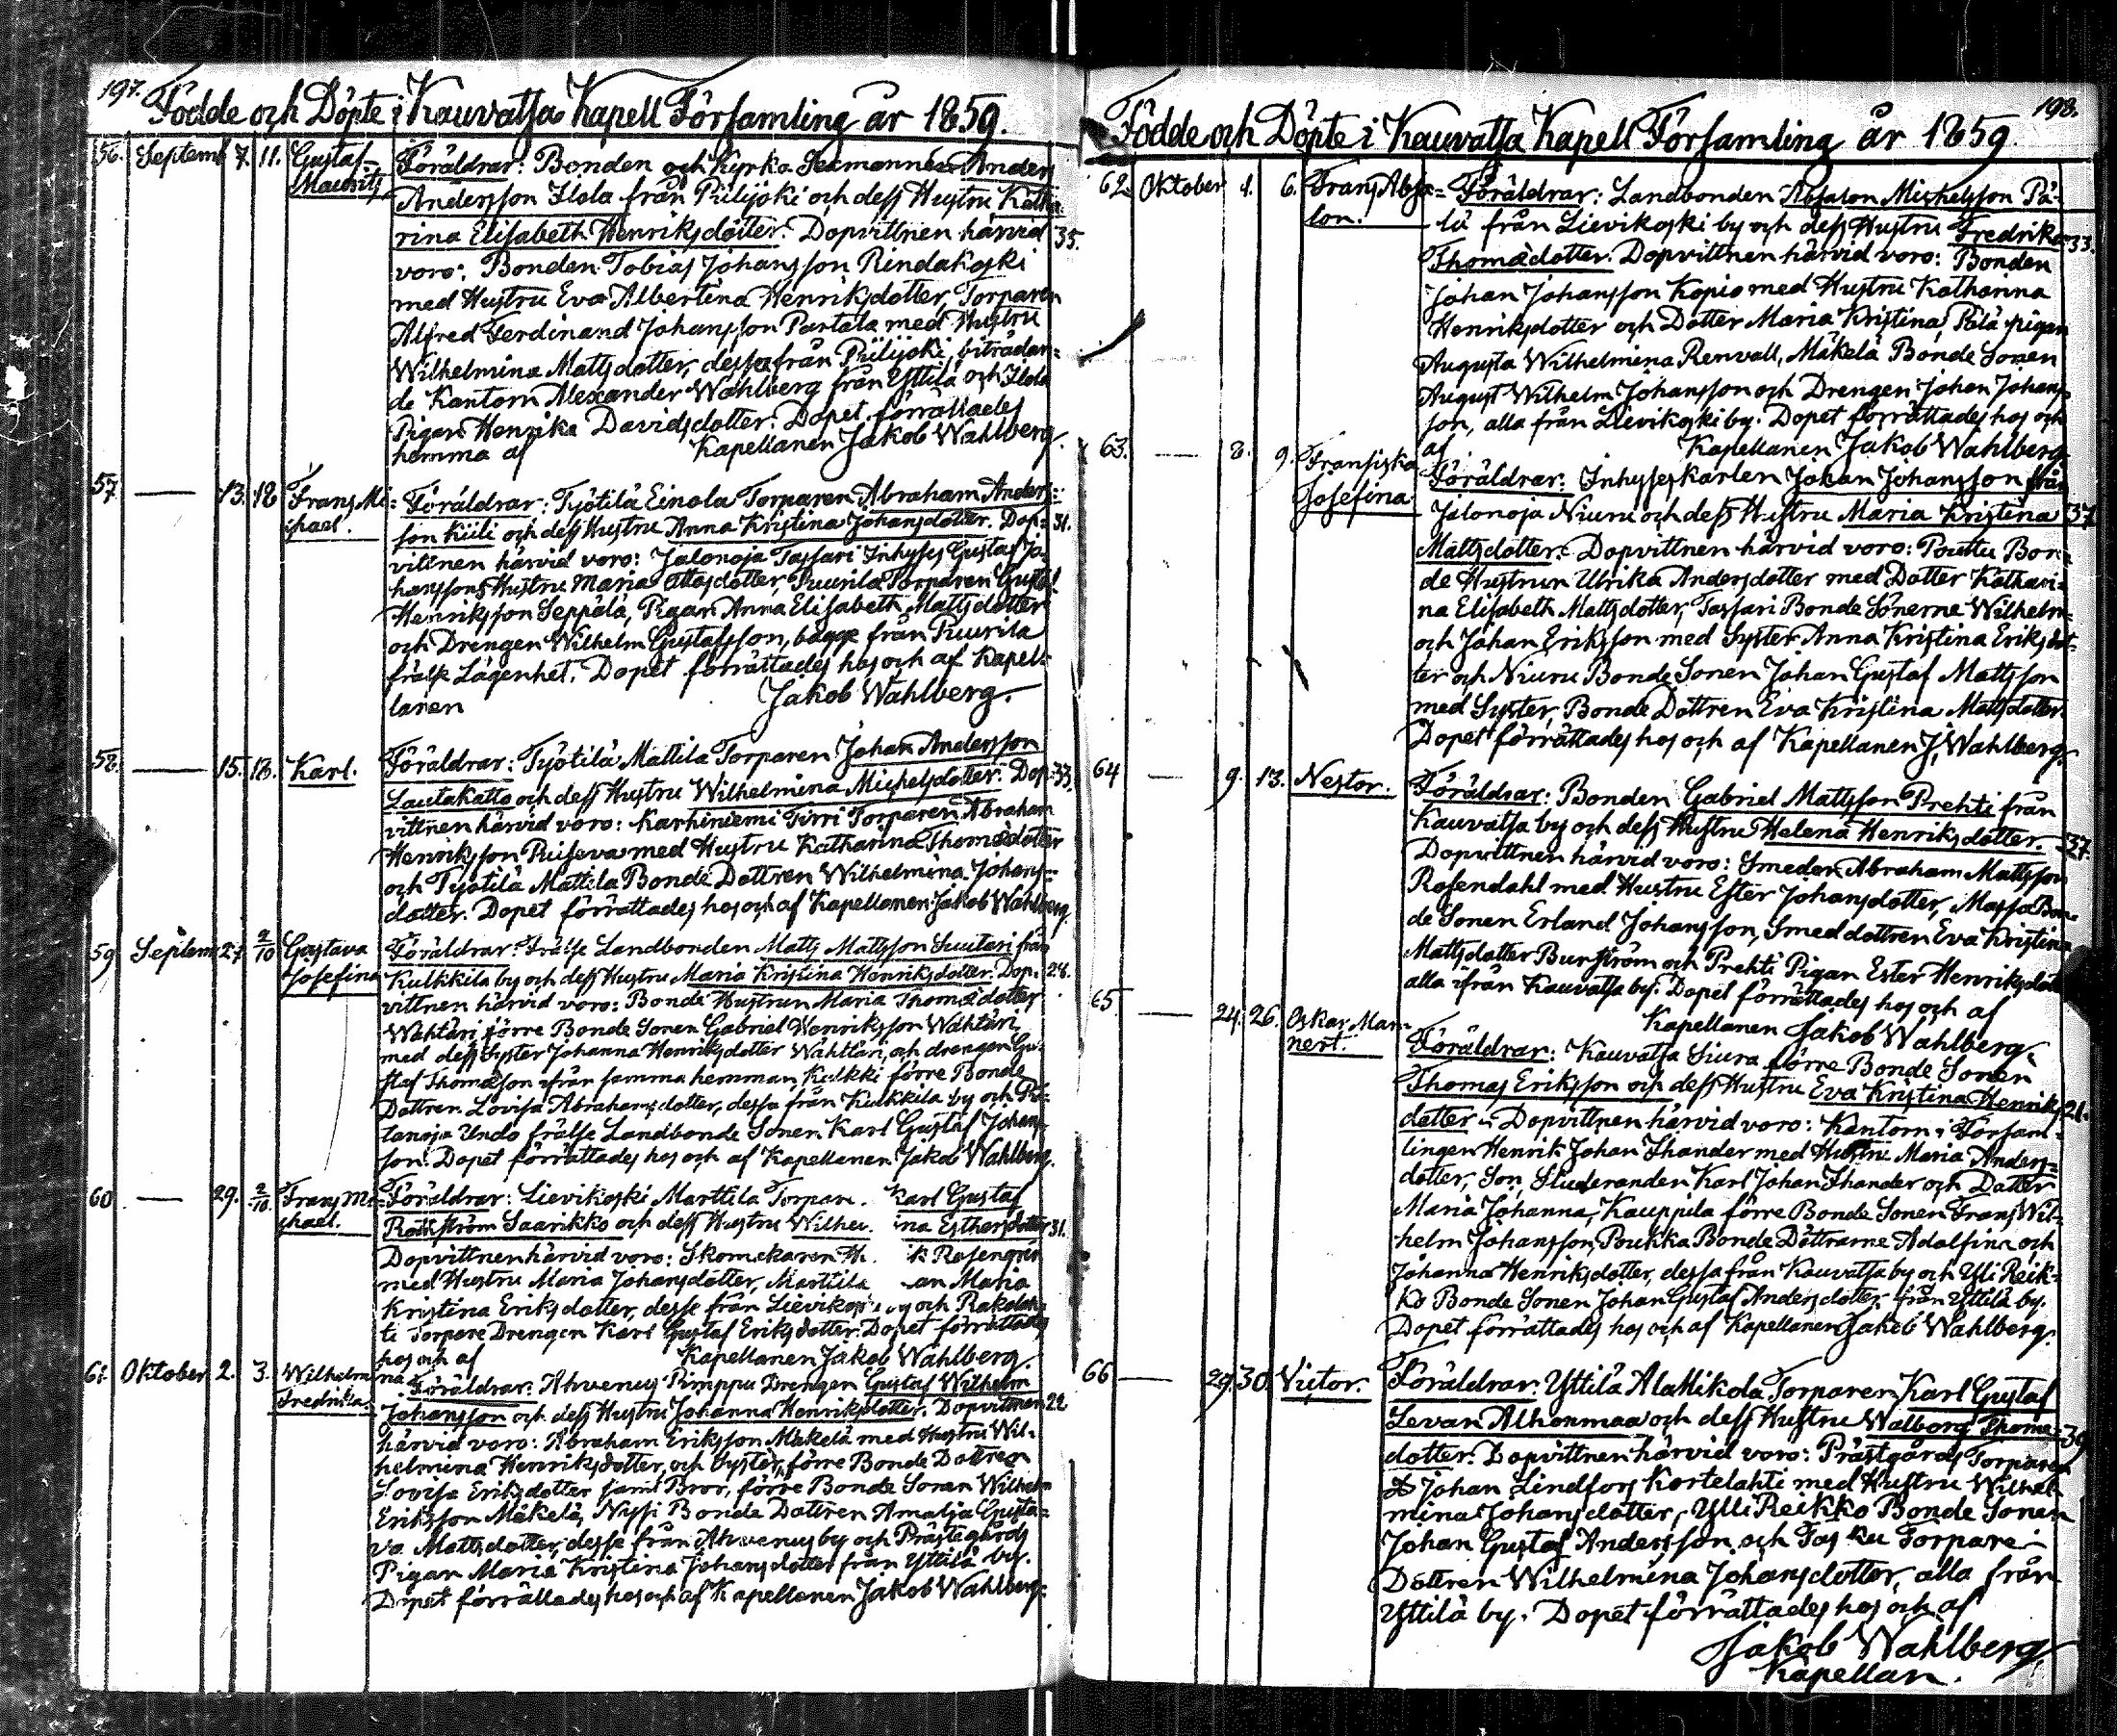 197.
Födde och Döpte i Kauvatsa Kapell Församling år 1859.
56. Septemb 7. 11. Gustaf Mauritz
Föräldrar: Bonden och Kyrko Sexmannen Anders
Andersson Ilola från Piilijoki och dess Hustru Katha-
rina Elisabeth Henriksdotter. Dopvittnen härvid 35.
voro: Bonden Tobias Johansson Rindakoski
med Hustru Eva Albertina Henriksdotter, Torparen
Alfred Ferdinand Johansson Partala med Hustru
Wilhelmina Mattsdotter, dessa från Piilijoki, biträdan-
de Kantorn Alexander Wahlberg från Yttilä och Ilola
Pigan Henrika Davidsdotter. Dopet förrättades
hemma af Kapellanen Jakob Wahlberg.
57 — 13. 18 Frans Mi-
chael.
Föräldrar: Työtilä Einola Torparen Abraham Anders-
son Kiili och dess Hustru Anna Kristina Johansdotter. Dop- 31.
vittnen härvid voro: Jalonoja Tassari Inhyses Gustaf Jo-
hanssons Hustru Maria Mattsdotter, Puurila Torparen Gustaf
Henriksson Seppälä, Pigan Anna Elisabeth Mattsdotter
och Drengen Wilhelm Gustafsson, bägge från Puurila
frälse Lägenhet. Dopet förrättades hos och af Kapel-
lanen Jakob Wahlberg.
58. — 15. 18. Karl.
Föräldrar: Työtilä Mattila Torparen Johan Andersson
Lautakatto och dess Hustru Wilhelmina Michelsdotter. Dop- 33.
vittnen härvid voro: Karhiniemi Pirri Torparen Abraham
Henriksson Puiseva med Hustru Katharina Thomædotter
och Työtilä Mattila Bonde Dottren Wilhelmina Johans-
dotter. Dopet förrättades hos och af Kapellanen Jakob Wahlberg.
59 Septem 27. 2/10 Gustava
Josefina
Föräldrar: Frälse Landbonden Matts Mattsson Suutari från
Kulkkila by och dess Hustru Maria Kristina Henriksdotter. Dop- 28.
vittnen härvid voro: Bonde Hustrun Maria Thomædotter
Wahtäri, förre Bonde Sonen Gabriel Henriksson Wahtäri
med dess Syster Johanna Henriksdotter Wahtäri, och drengen Gu-
staf Thomæson ifrån samma hemman, Kulkki förre Bonde
Dottren Lovisa Abrahamsdotter, dessa från Kulkkila by och Pu-
tanoja Undo frälse Landbonde Sonen Karl Gustaf Johans-
son. Dopet förrättades hos och af Kapellanen Jakob Wahlberg.
60 — 29. 2/10. Frans Mi-
chael.
Föräldrar: Lievikoski Marttila Torpare. Karl Gustaf
Ramström Saarikko och dess Hustru Wilhel. ina Esthersdotter 31.
Dopvittnen härvid voro: Skomakaren H. k Rosengren
med Hustru Maria Johansdotter, Marttila an Maria
Kristina Eriksdotter, desse från Lievikos by och Rakolah-
ti Torpare Drengen Karl Gustaf Eriksdotter. Dopet förrättades
hos och af Kapellanen Jakob Wahlberg.
61. Oktober 2. 3. Wilhelmi-
na
Fredrika.
Föräldrar: Ahvenus Pimppu Drengen Gustaf Wilhelm
Johansson och dess Hustru Johanna Henriksdotter. Dopvittnen 22
härvid voro: Abraham Eriksson Mäkelä med Hustru Wil-
helmina Henriksdotter, och Syster, förre Bonde Dottren
Lovisa Eriksdotter samt Bror, förre Bonde Sonen Wilhelm
Eriksson Mäkelä, Nyssi Bonde Dottren Amalja Gusta-
va Mattsdotter, desse från Ahvenus by och Prästegårds
Pigan Maria Kristina Johansdotter från Yttilä by.
Dopet förrättades hos och af Kapellanen Jakob Wahlberg.
198.
Födde och Döpte i Kauvatsa Kapell Församling år 1859.
62. Oktober 1. 6. Frans Absa-
lon.
Föräldrar: Landbonden Absalon Michelsson Pä-
lä från Lievikoski by och dess Hustru Fredrika 33.
Thomædotter. Dopvittnen härvid voro: Bonden
Johan Johansson Kopio med Hustru Katharina
Henriksdotter och Dotter Maria Kristina, Pälä pigan
Augusta Wilhelmina Renvall, Mäkelä Bonde Sonen
August Wilhelm Johansson och Drengen Johan Johans-
son, alla från Lievikoski by. Dopet förrättades hos och
af Kapellanen Jakob Wahlberg.
63. — 8. 9. Fransiska
Josefina.
Föräldrar: Inhyseskarlen Johan Johansson från
Jalonoja Niuru och dess Hustru Maria Kristina 37.
Mattsdotter. Dopvittnen härvid voro: Pouttu Bon-
de Hustrun Ulrika Andersdotter med Dotter Kathari-
na Elisabeth Mattsdotter, Tassari Bonde Sönerne Wilhelm
och Johan Eriksson med Syster Anna Kristina Eriksdot-
ter och Niuru Bonde Sonen Johan Gustaf Mattsson
med Syster, Bonde Dottren Eva Kristina Mattsdotter.
Dopet förrättades hos och af Kapellanen J. Wahlberg.
64 — 9. 13. Nestor.
Föräldrar: Bonden Gabriel Mattsson Prehti från
Kauvatsa by och dess Hustru Helena Henriksdotter. 37.
Dopvittnen härvid voro: Smeden Abraham Mattsson
Rosendahl med Hustru Ester Johansdotter, Massa Bon-
de Sonen Erland Johansson, Smed dottren Eva Kristina
Mattsdotter Burström och Prehti Pigan Ester Henriksdotter
alla ifrån Kauvatsa by. Dopet förrättades hos och af
Kapellanen Jakob Wahlberg.
65. — 24. 26. Oskar Man-
nert.
Föräldrar: Kauvatsa Siura förre Bonde Sonen
Thomas Eriksson och dess Hustru Eva Kristina Henriks 21.
dotter. Dopvittnen härvid voro: Kantorn i Försam-
lingen Henrik Johan Ihander med Hustru Maria Anders-
dotter, Son, Studeranden Karl Johan Ihander och Dotter
Maria Johanna, Kauppila förre Bonde Sonen Frans Wil-
helm Johansson, Poukka Bonde Döttrarne Adolfina och
Johanna Henriksdotter, dessa från Kauvatsa by och Yli Reik-
ko Bonde Sonen Johan Gustaf Andersdotter från Yttilä by.
Dopet förrättades hos och af Kapellanen Jakob Wahlberg.
66 — 29. 30. Victor.
Föräldrar: Yttilä Alattikola Torparen Karl Gustaf
Levan Alhonmaa och dess Hustru Walborg Thomæ- 39
dotter. Dopvittnen härvid voro: Prästgårds Torparen
Johan Lindfors Kortelahti med Hustru Wilhel-
mina Johansdotter, Ylli Reikko Bonde Sonen
Johan Gustaf Andersson, och Tas ku Torpare
Dottren Wilhelmina Johansdotter, alla från
Yttilä by. Dopet förrättades hos och af
Jakob Wahlberg
Kapellan.